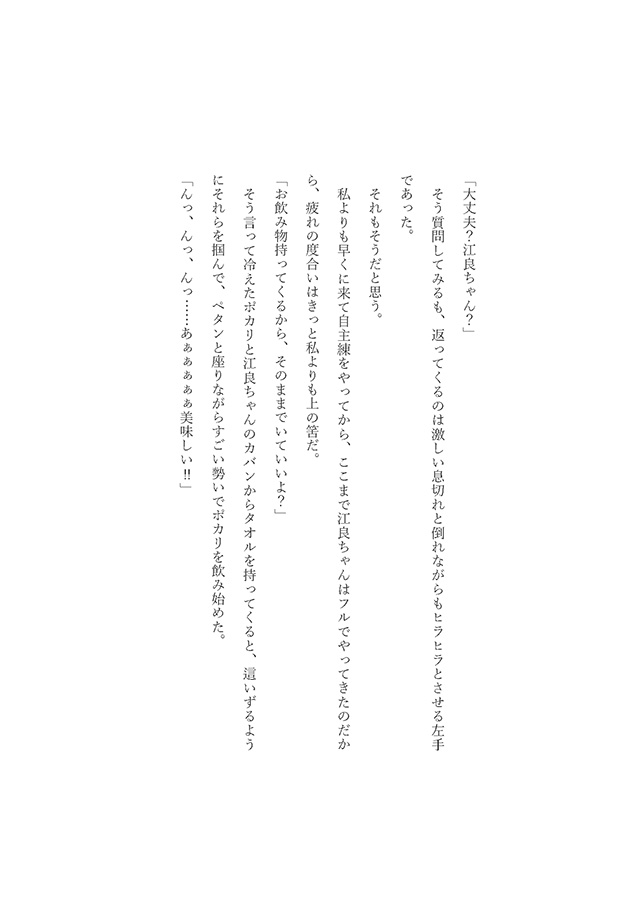 「大丈夫？江良ちゃん？」
　そう質問してみるも、返ってくるのは激しい息切れと倒れながらもヒラヒラとさせる左手
であった。
　それもそうだと思う。
　私よりも早くに来て自主練をやってから、ここまで江良ちゃんはフルでやってきたのだか
ら、疲れの度合いはきっと私よりも上の筈だ。
「お飲み物持ってくるから、そのままでいていいよ？」
　そう言って冷えたポカリと江良ちゃんのカバンからタオルを持ってくると、這いずるよう
にそれらを掴んで、ペタンと座りながらすごい勢いでポカリを飲み始めた。
「んっ、んっ、んっ……あぁぁぁぁぁ美味しい‼」